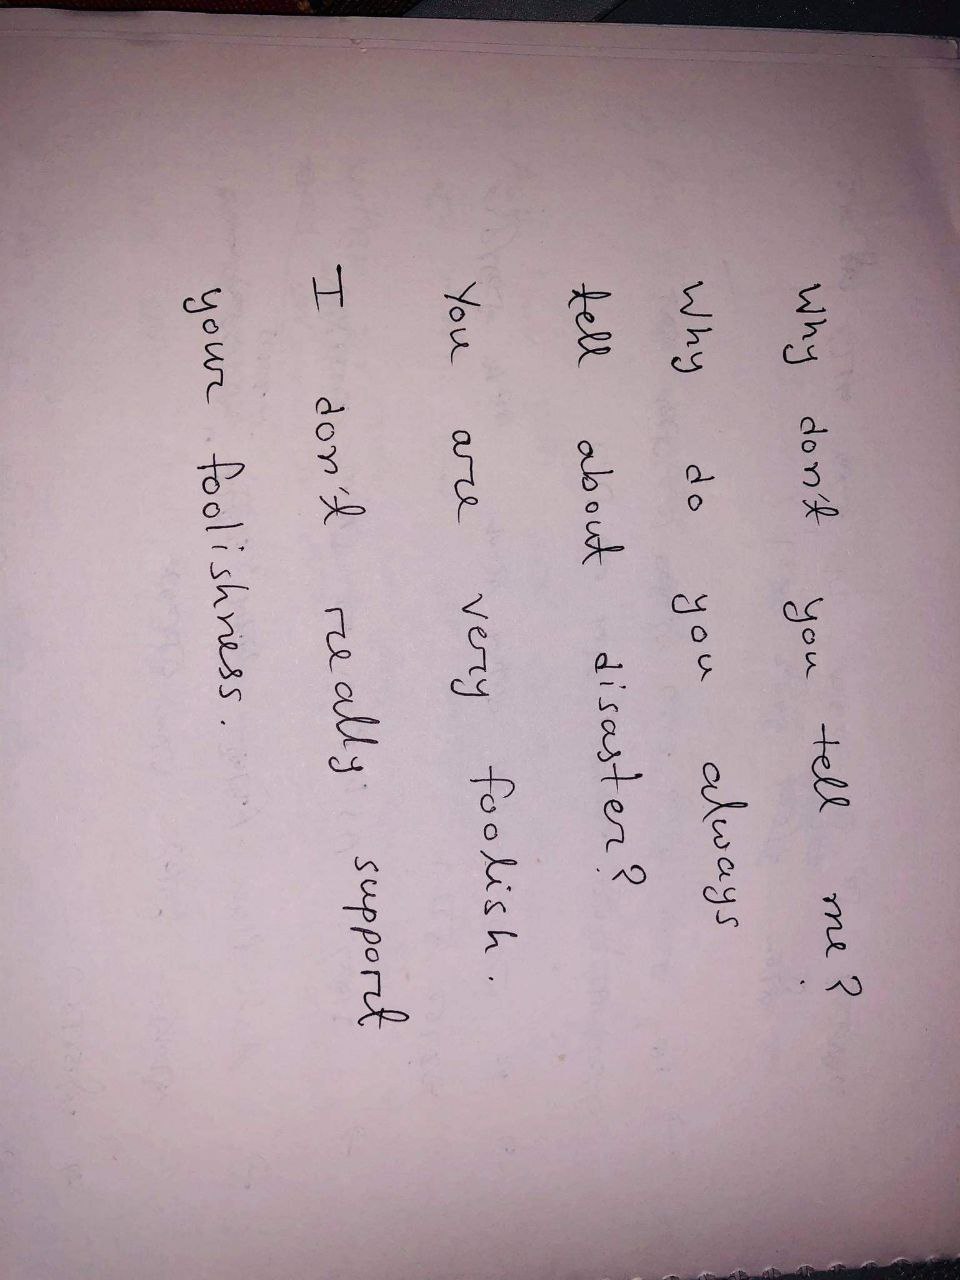 Why don't you tell me?
Why do you always
tell about disaster?
You are very foolish.
I don't really support
your foolishness.